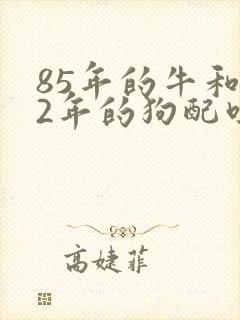 85年的牛和
2年的狗配
高婕菲